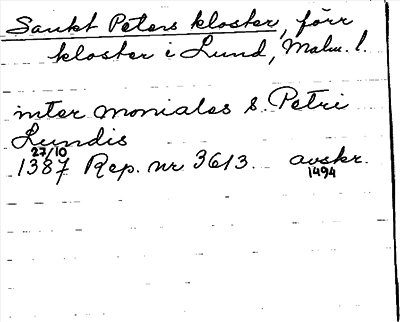 Sankt Peters kloster, förr
kloster i Lund, Malm. l.
inter moniales S. Petri
Lundis
27/10
1387 Rep. nr 3613. avskr.
1494